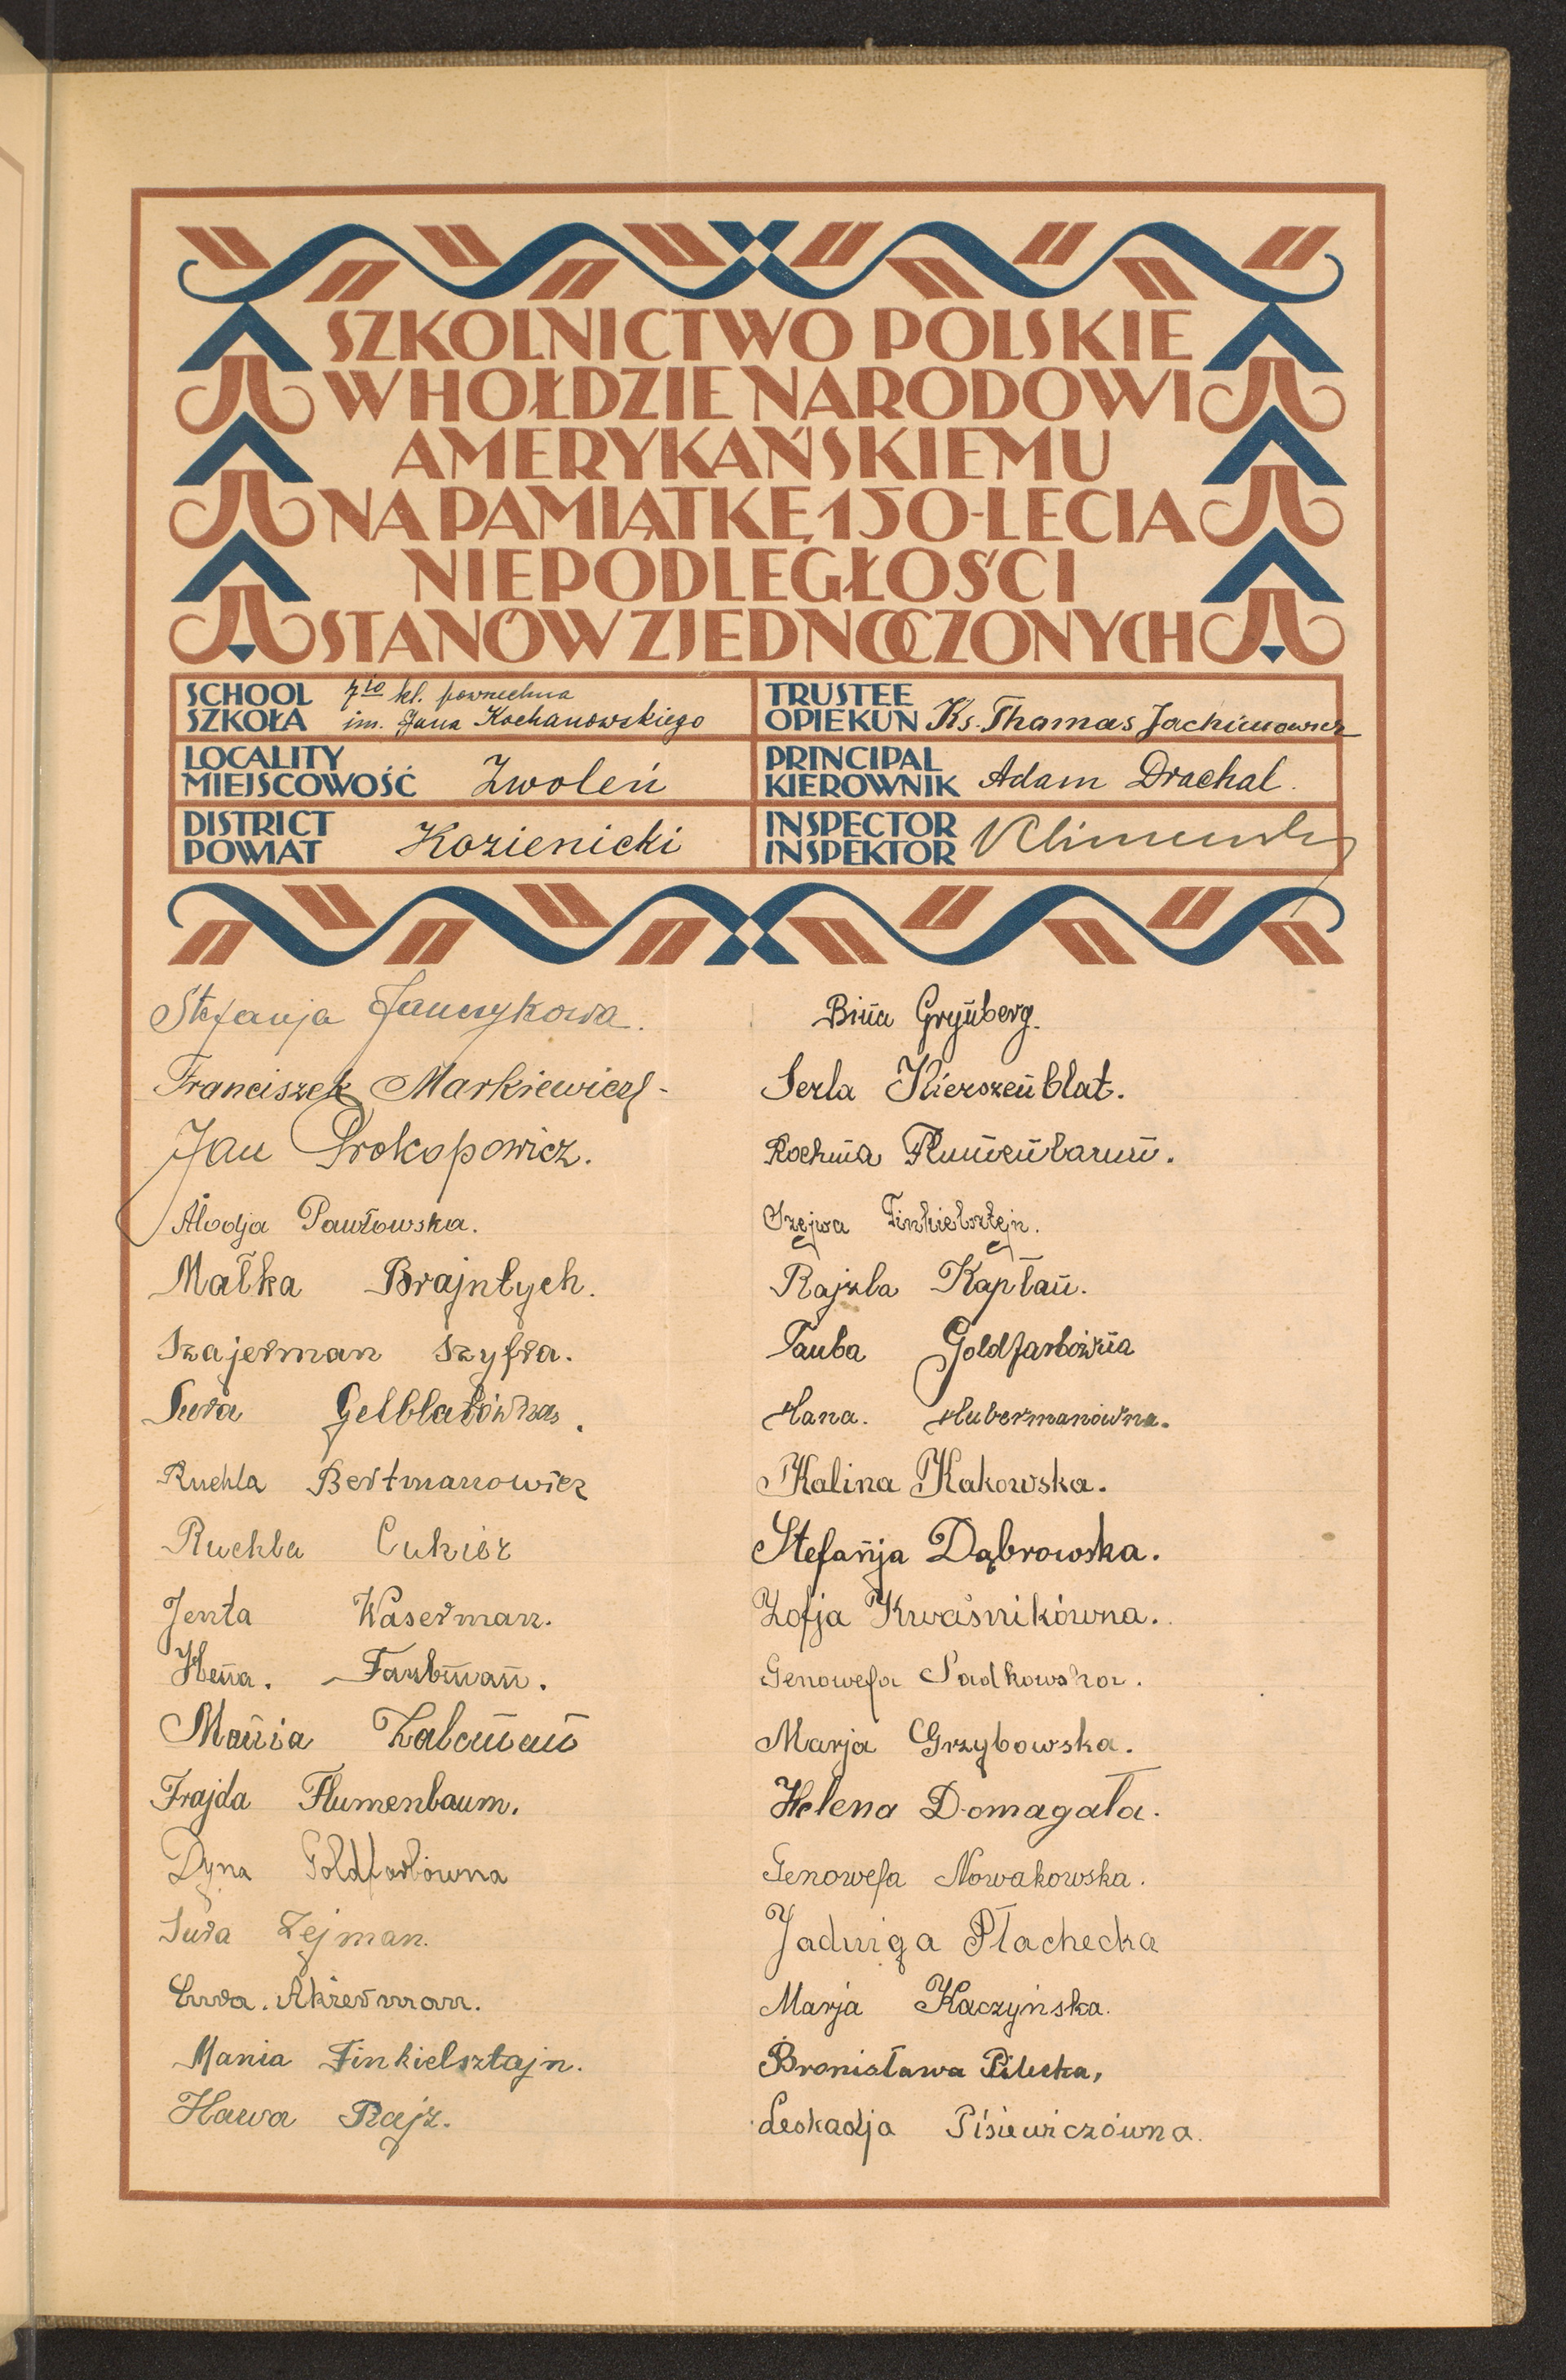 SZKOLNICTWO POLSKIE
W HOŁDZIE NARODOWI
AMERYKAŃSKIEMU
NA PAMIĄTKĘ 150-LECIA
NIEPODLEGŁOŚCI
STANÓW ZJEDNOCZONYCH
SCHOOL
SZKOŁA
7io kl. powszechna
im. Jana Kochanowskiego
TRUSTEE
OPIEKUN Ks. Thomas Jachimowicz
LOCALITY
MIEJSCOWOŚĆ Zwoleń
PRINCIPAL
KIEROWNIK Adam Drachal.
DISTRICT
POWIAT Kozienicki
INSPECTOR
INSPEKTOR
Stefanja Janczykowa.
Franciszek Markiewicz
Jan Prokopowicz.
Alodja Pawłowska.
Małka Brajntych.
Szajerman Szyfra.
Sura Gelblatówna.
Ruchla Bertmanowicz
Ruchla Cukier
Jenta Waserman.
Hena. Farbman.
Mania Zalcman
Frajda Flumenbaum.
Dyna Goldfarbówna
Sura Zejman.
Sura. Akierman.
Mania Finkielsztajn.
Hawa Rajz.
Bina Grynberg.
Serla Kierszenblat.
Rochma Flumenbaum.
Szejwa Finkielsztejn.
Rajzla Kapłan.
Tauba Goldfarbówna
Hana. Hubermanówna.
Kalina Kakowska.
Stefanja Dąbrowska.
Zofja Kwaśnikówna.
Genowefa Sadkowska.
Marja Grzybowska.
Helena Domagała.
Genowefa Nowakowska.
Jadwiga Płachecka
Marja Kaczyńska.
Bronisława Pilecka,
Leokadja Pisiewiczówna.